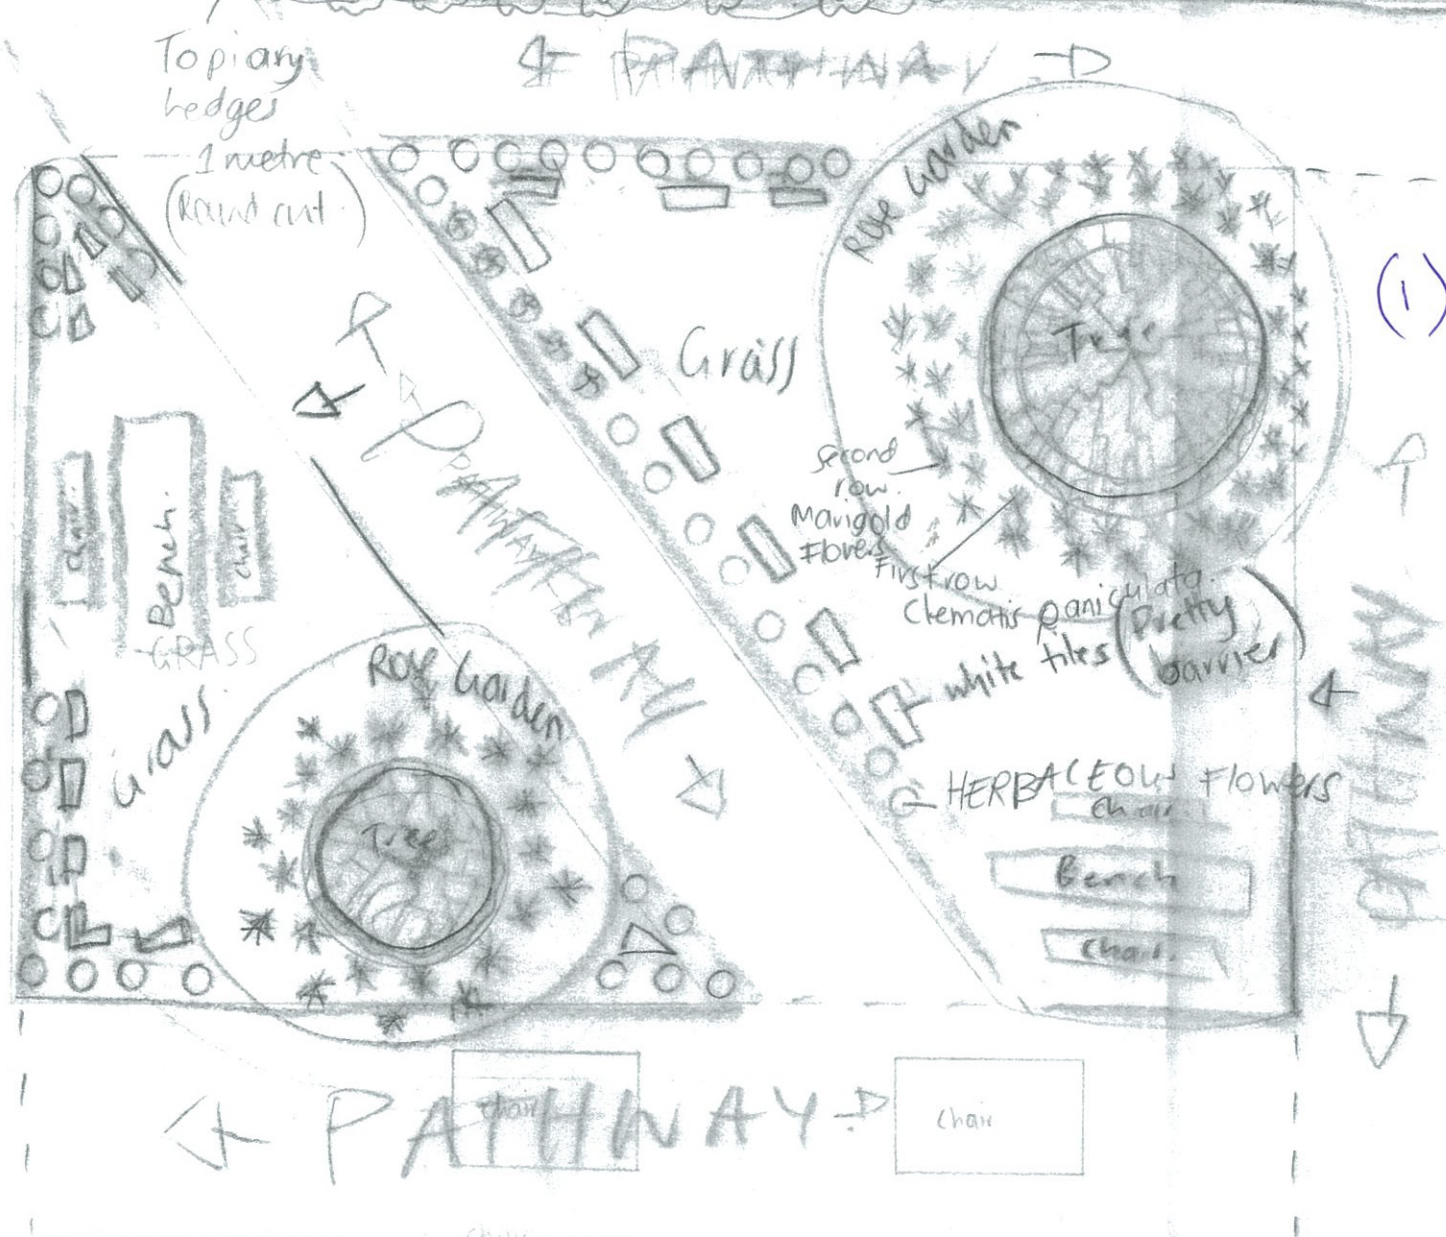 Topiary
hedges
1 metre
(Round cut)
PATHWAY
Rose Garden
(1)
Tree
Grass
PATHWAY
second
row
Marigold
Flowers
First row
Clematis paniculata
white tiles (Pretty
barrier)
chair
Bench
chair
GRASS
Grass
Rose Garden
Tree
PATHWAY
HERBACEOUS Flowers
chair
Bench
chair
PATHWAY
chair
chair
chair